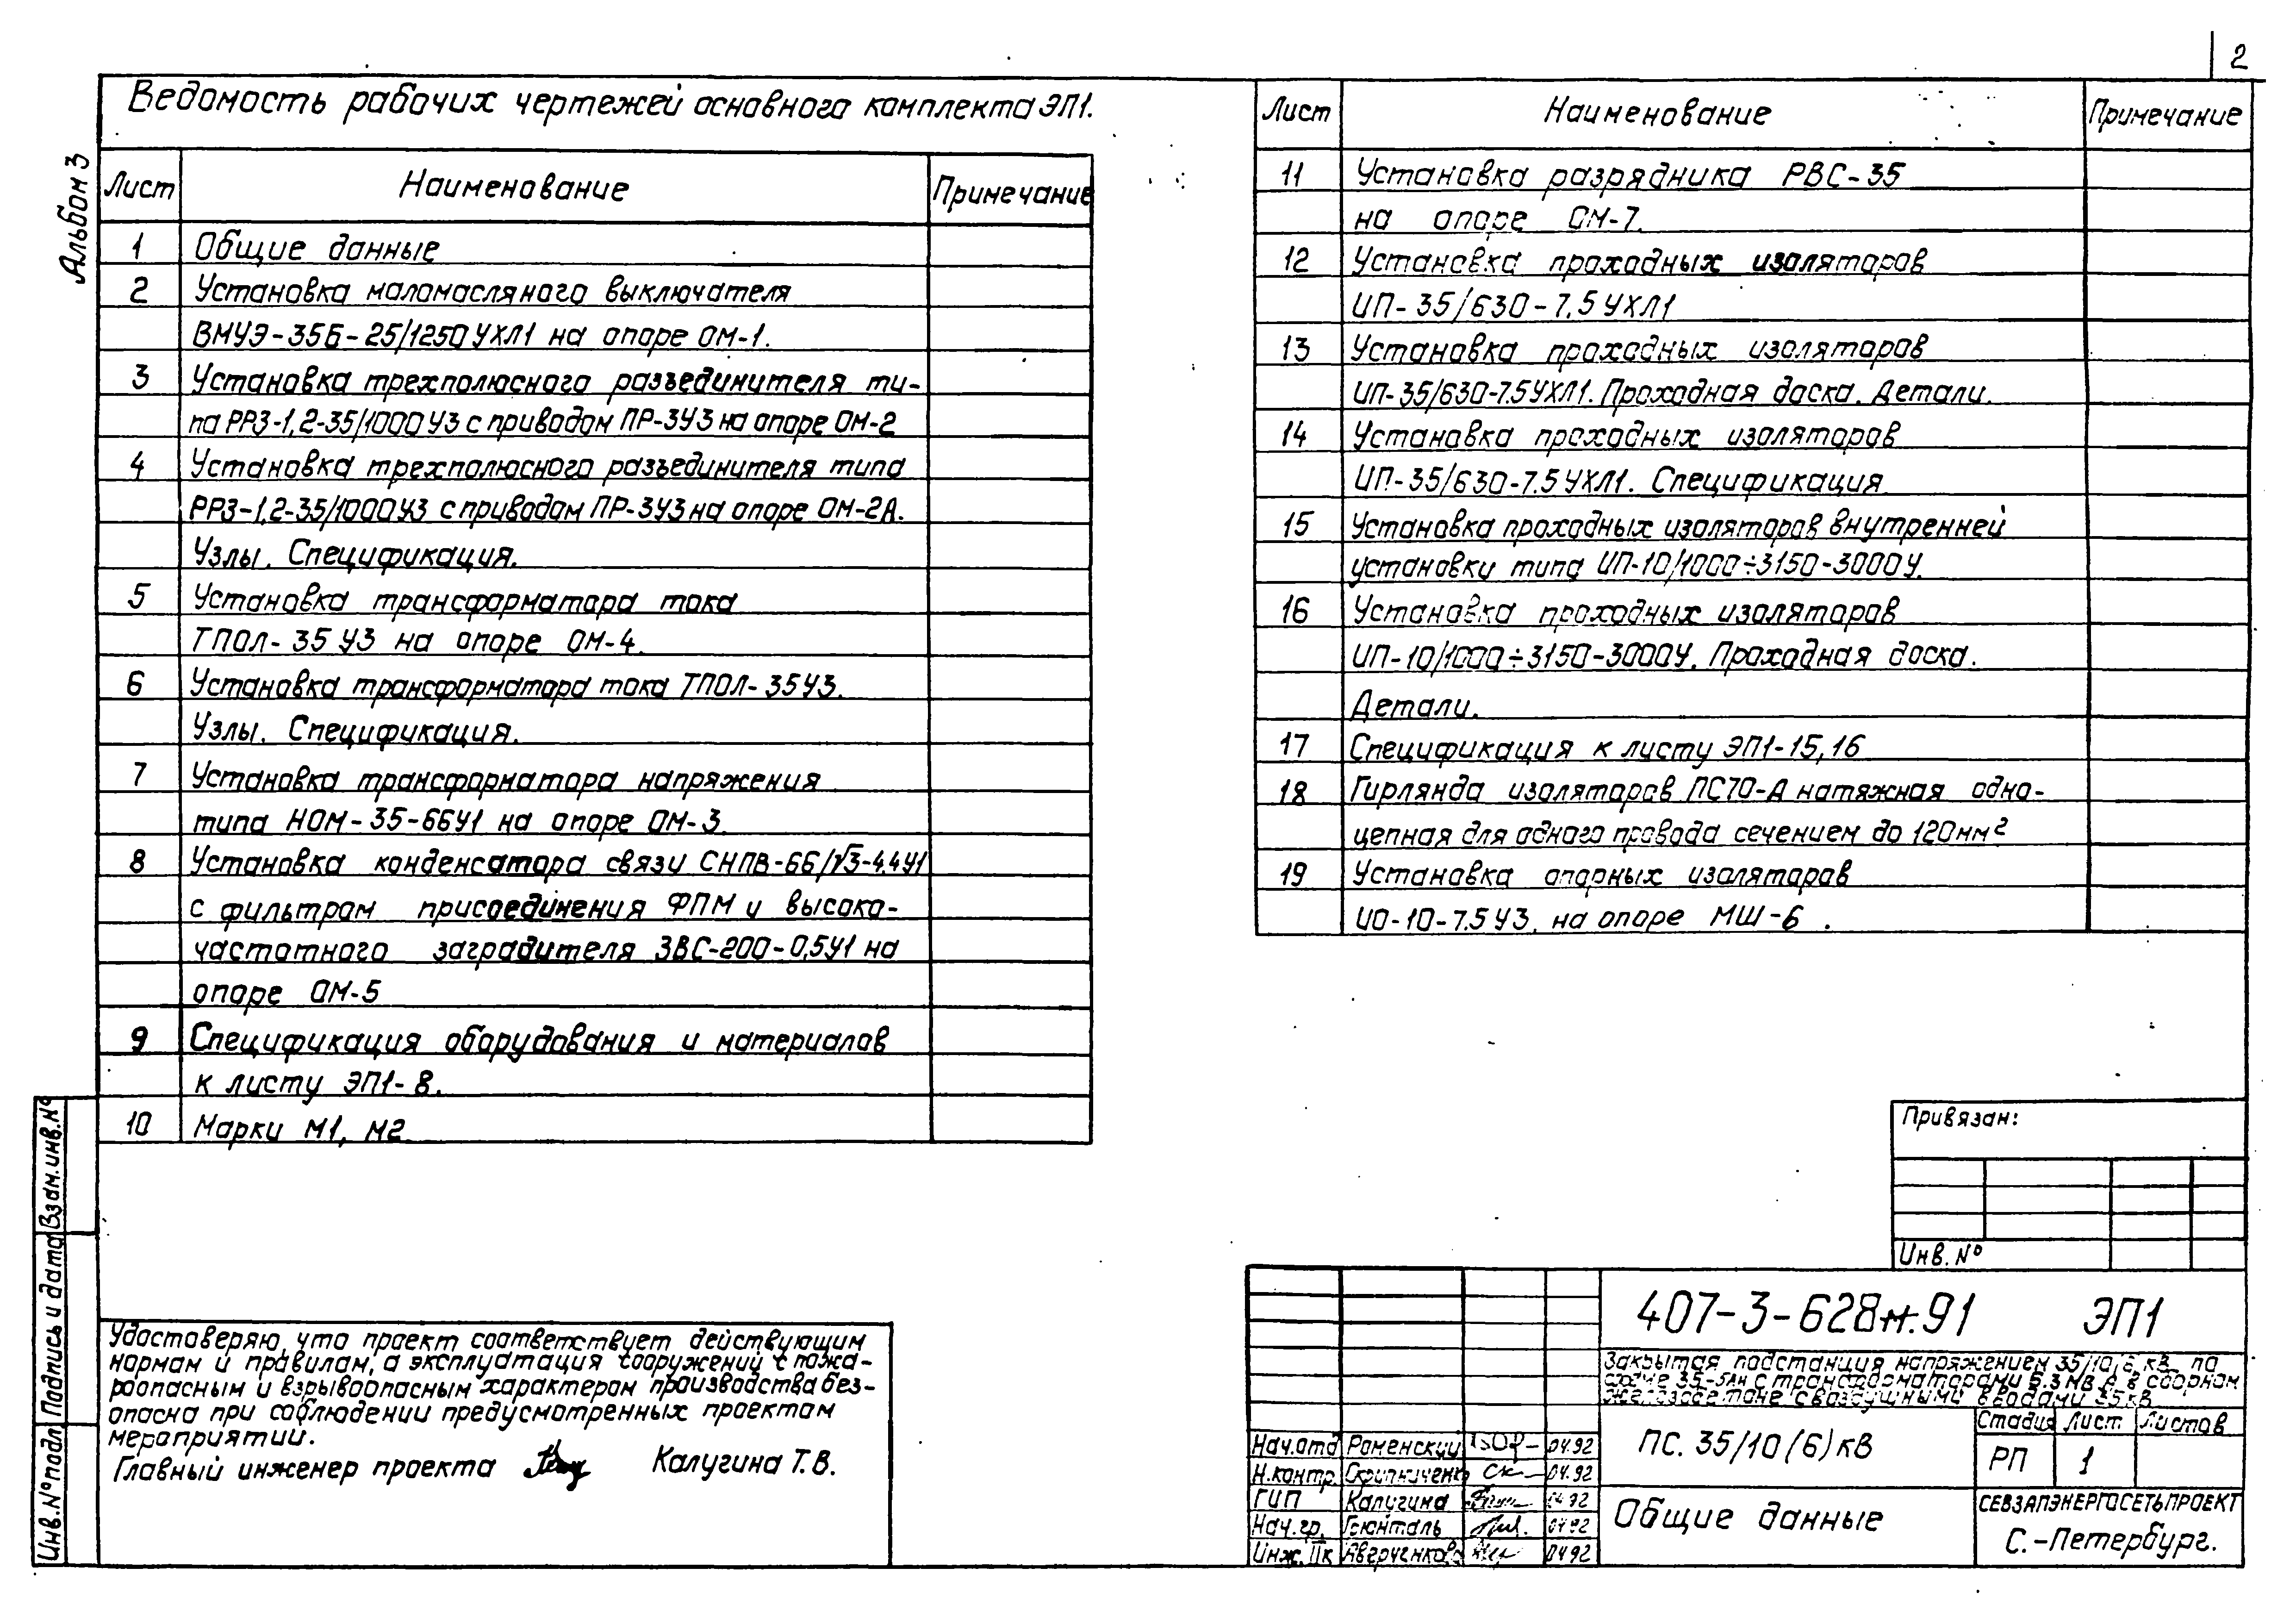 2
Альбом 3
Ведомость рабочих чертежей основного комплекта ЭП1.
Лист Наименование Примечание
1 Общие данные
2 Установка маломасляного выключателя
ВМУЭ-35Б-25/1250 УХЛ1 на опоре ОМ-1.
3 Установка трехполюсного разъединителя ти-
па РРЗ-1,2-35/1000 У3 с приводом ПР-3У3 на опоре ОМ-2
4 Установка трехполюсного разъединителя типа
РРЗ-1,2-35/1000У3 с приводом ПР-3У3 на опоре ОМ-2А.
Узлы. Спецификация.
5 Установка трансформатора тока
ТПОЛ-35 У3 на опоре ОМ-4.
6 Установка трансформатора тока ТПОЛ-35У3.
Узлы. Спецификация.
7 Установка трансформатора напряжения
типа НОМ-35-66У1 на опоре ОМ-3.
8 Установка конденсатора связи СНПВ-66/√3-4.4У1
с фильтром присоединения ФПМ и высоко-
частотного заградителя ЗВС-200-0,5У1 на
опоре ОМ-5
9 Спецификация оборудования и материалов
к листу ЭП1-8.
10 Марки М1, М2
Лист Наименование Примечание
11 Установка разрядника РВС-35
на опоре ОМ-7.
12 Установка проходных изоляторов
ИП-35/630-7.5 УХЛ1
13 Установка проходных изоляторов
ИП-35/630-7.5УХЛ1. Проходная доска. Детали.
14 Установка проходных изоляторов
ИП-35/630-7.5 УХЛ1. Спецификация
15 Установка проходных изоляторов внутренней
установки типа ИП-10/1000÷3150-3000У.
16 Установка проходных изоляторов
ИП-10/1000÷3150-3000У. Проходная доска.
Детали.
17 Спецификация к листу ЭП1-15,16
18 Гирлянда изоляторов ПС70-А натяжная одно-
цепная для одного провода сечением до 120мм²
19 Установка опорных изоляторов
ИО-10-7.5 У3. на опоре МШ-6.
Удостоверяю, что проект соответствует действующим
нормам и правилам, а эксплуатация сооружений с пожа-
роопасным и взрывоопасным характером производства без-
опасна при соблюдении предусмотренных проектом
мероприятий.
Главный инженер проекта Калугина Т.В.
Взам.инв.№
Подпись и дата
Инв.№подл
Привязан:
Инв. №
407-3-628м.91 ЭП1
Закрытая подстанция напряжением 35/10(6)кВ по
схеме 35-5АН с трансформаторами 6,3 МВ А в сборном
железобетоне с воздушными вводами 35кВ
Нач.отд Роменский 04.92
Н.контр. Скрипниченко 04.92
ГИП Калугина 04.92
Нач.гр. 04.92
Инж. IIк Аверченкова 04.92
ПС. 35/10(6)кВ
Стадия Лист Листов
РП 1
Общие данные
СЕВЗАПЭНЕРГОСЕТЬПРОЕКТ
С.-Петербург.